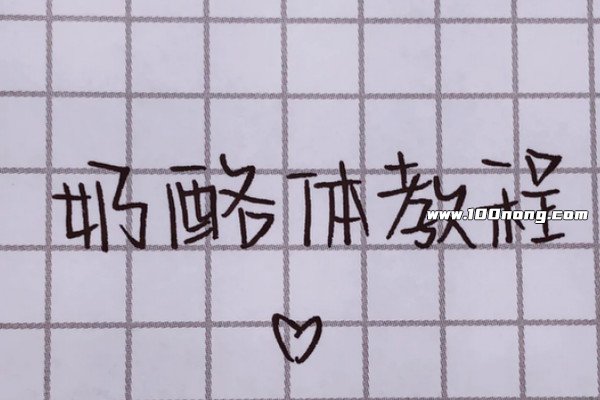 奶酪体教程
www.100nong.com